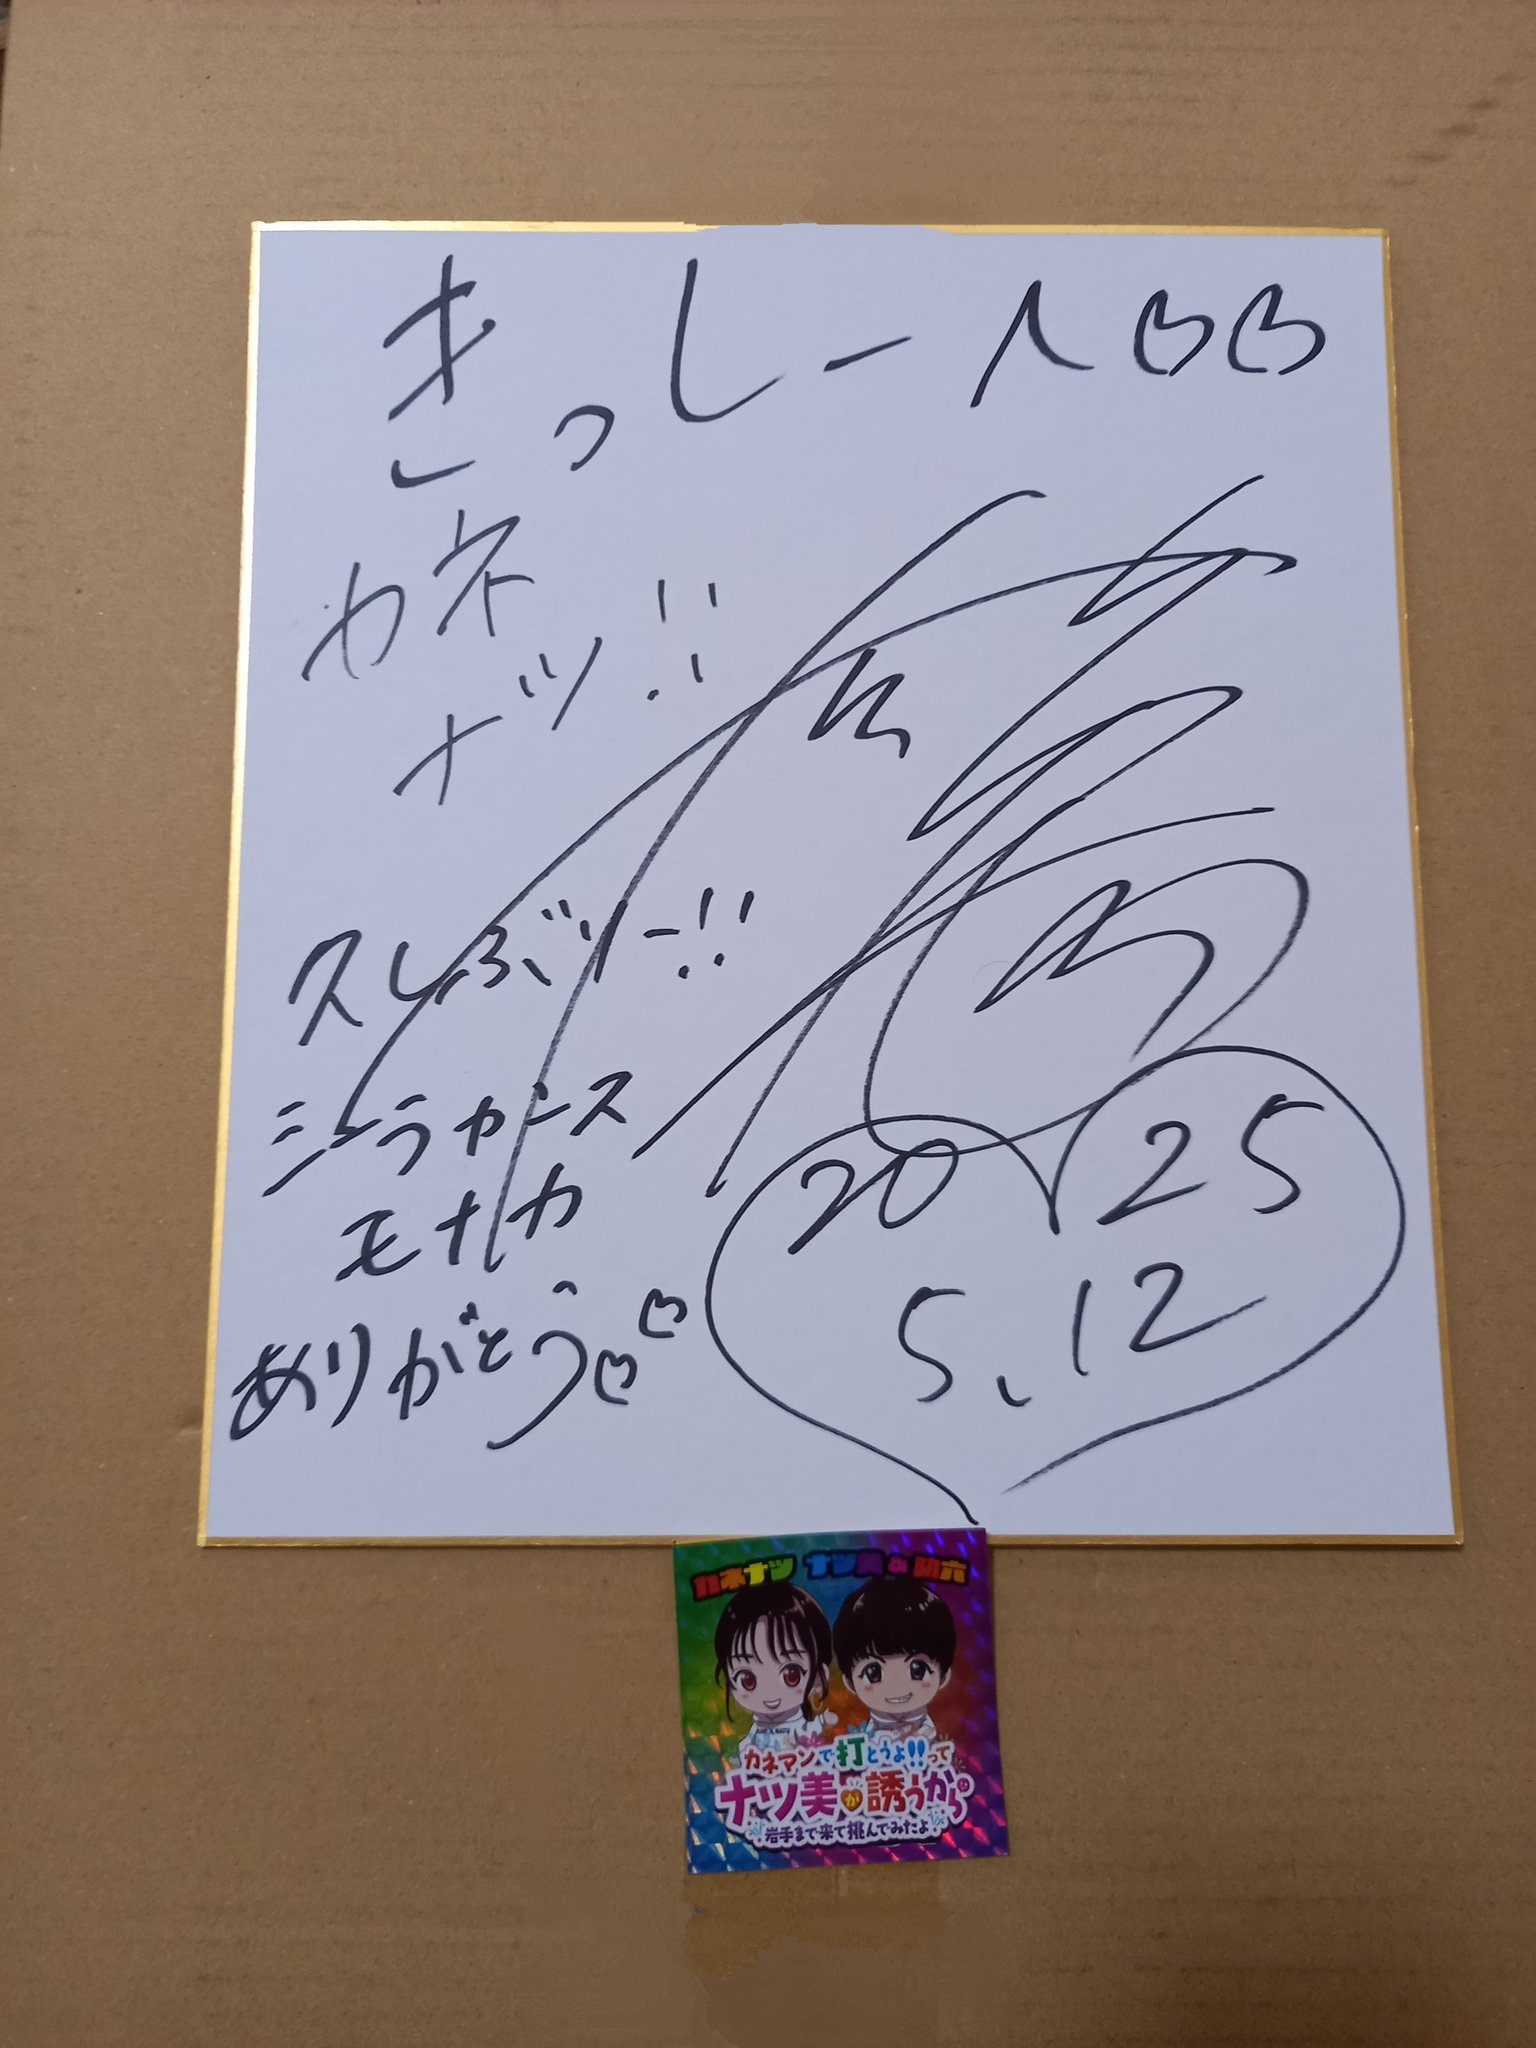 きっしーへ
カネ
ナツ!!
久しぶりー!!
シラカンス
モナカ
ありがとう
2025
5.12
カネナツ ナツ美&助六
カネマンで打とうよ!!って
ナツ美が誘うから
岩手まで来て挑んでみたよ